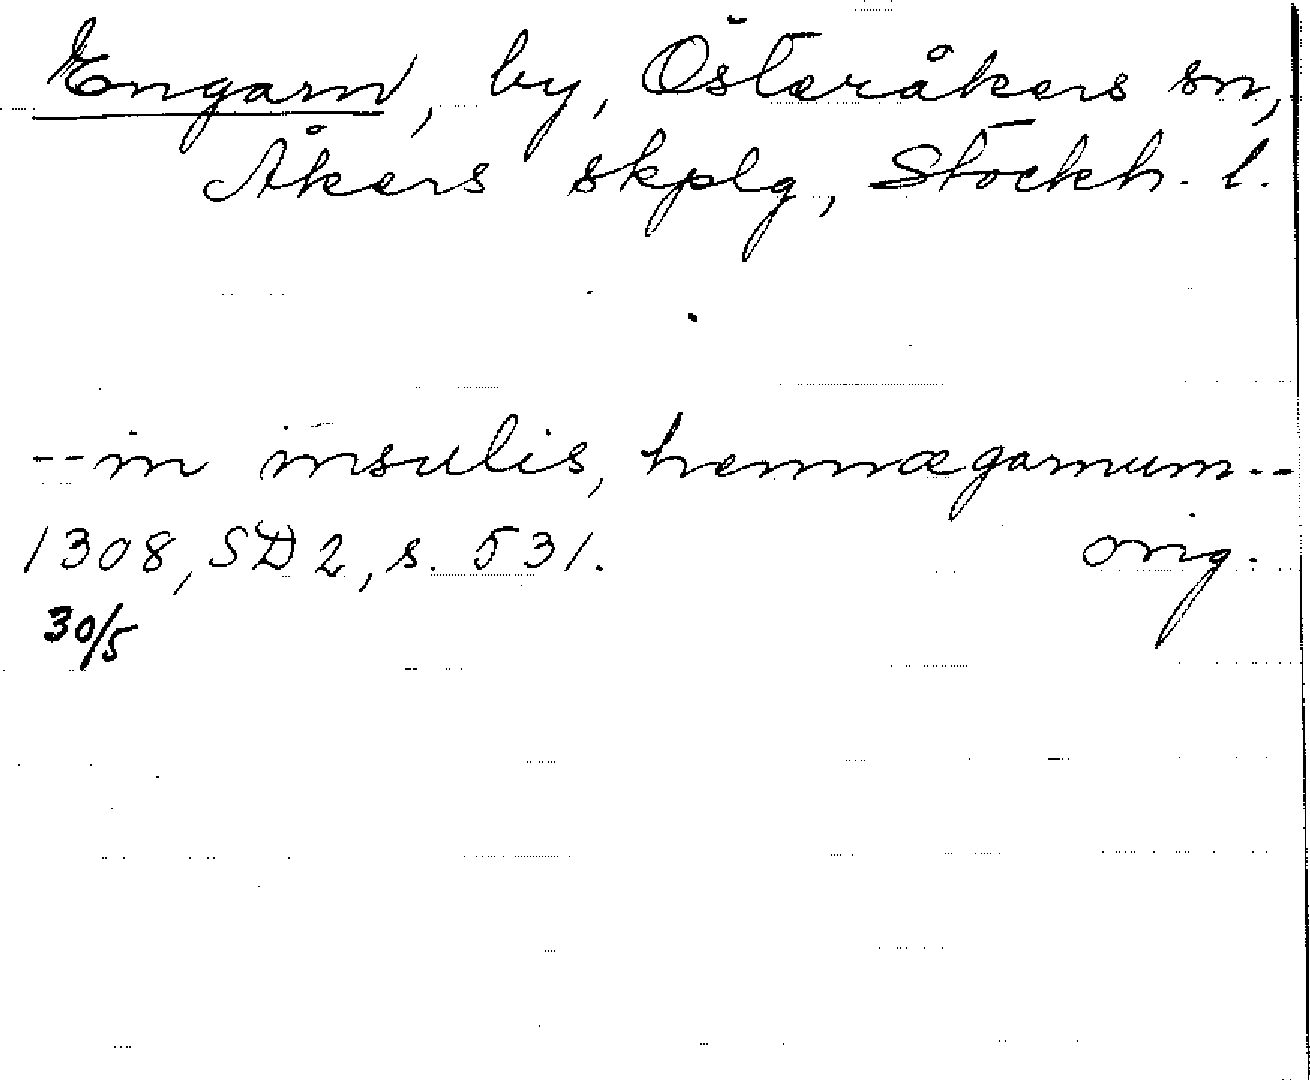 Engarn, by, Österåkers sn,
Åkers skplg, Stockh. l.
--in insulis, hennægarnum--
1308, SD 2, s. 531. orig.
30/5